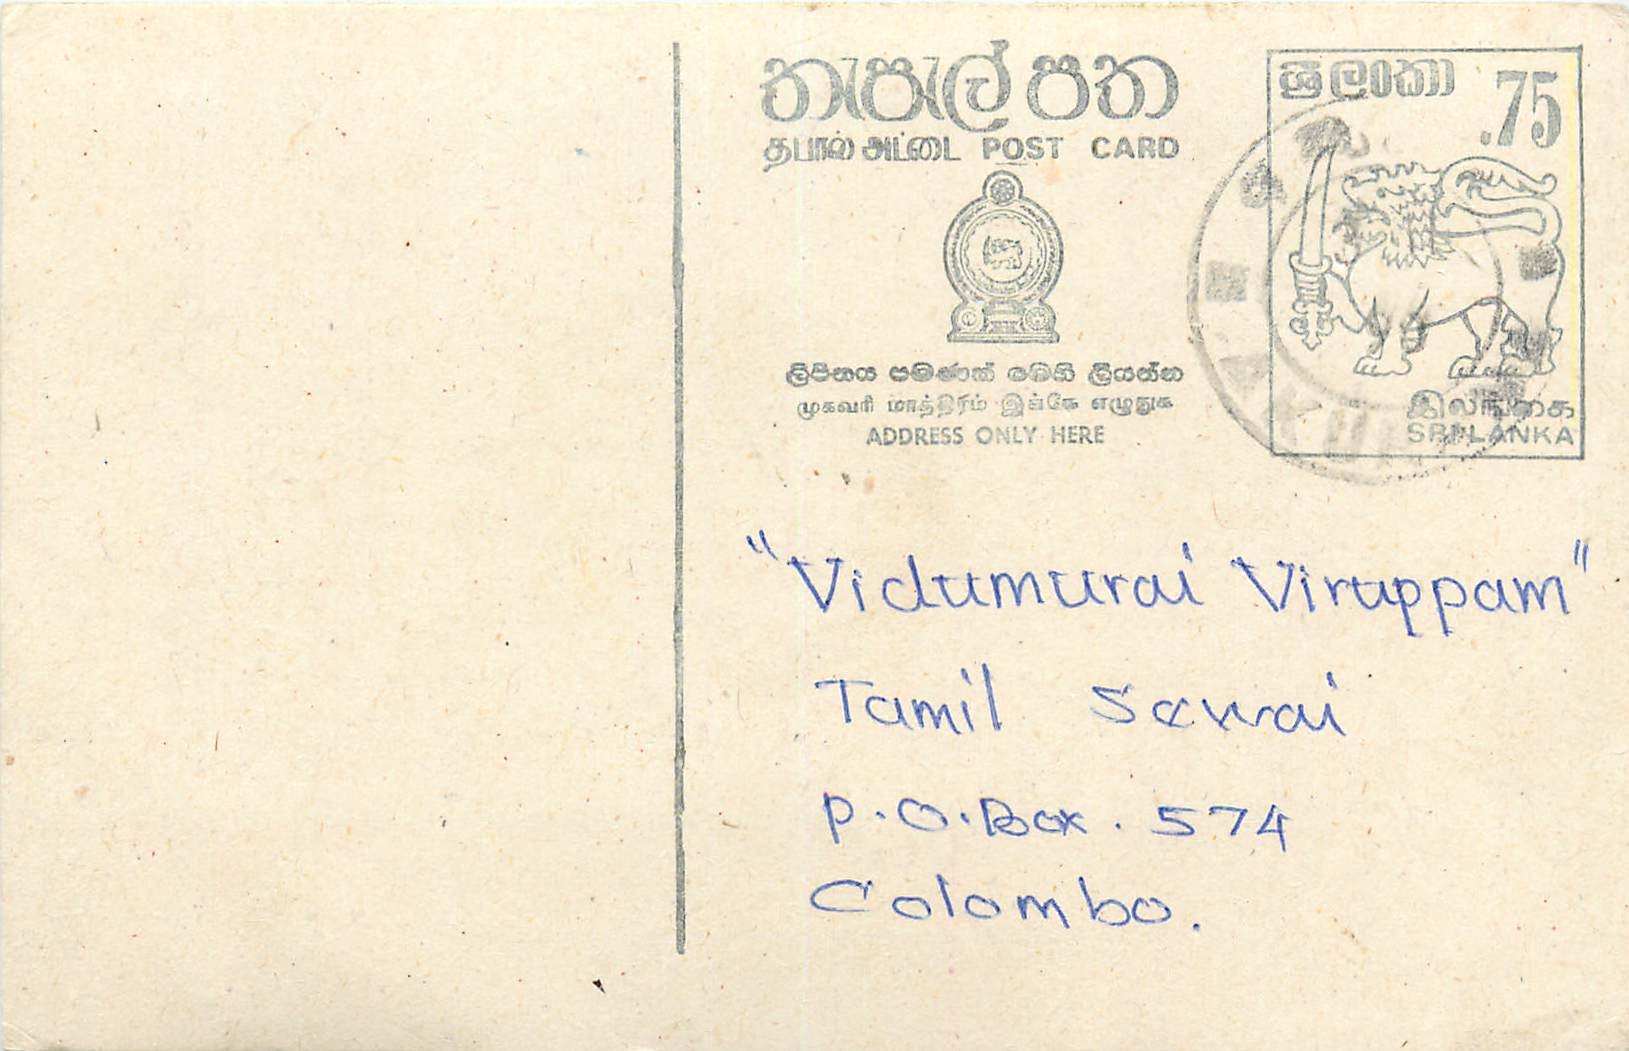 තැපැල් පත
தபால் அட்டை POST CARD
ලිපිනය පමණක් මෙහි ලියන්න
முகவரி மாத்திரம் இங்கே எழுதுக
ADDRESS ONLY HERE
ශ්‍රී ලංකා
.75
இலங்கை
SRI LANKA
"Vidumurai Viruppam"
Tamil Sewai
P.O.Box. 574
Colombo.